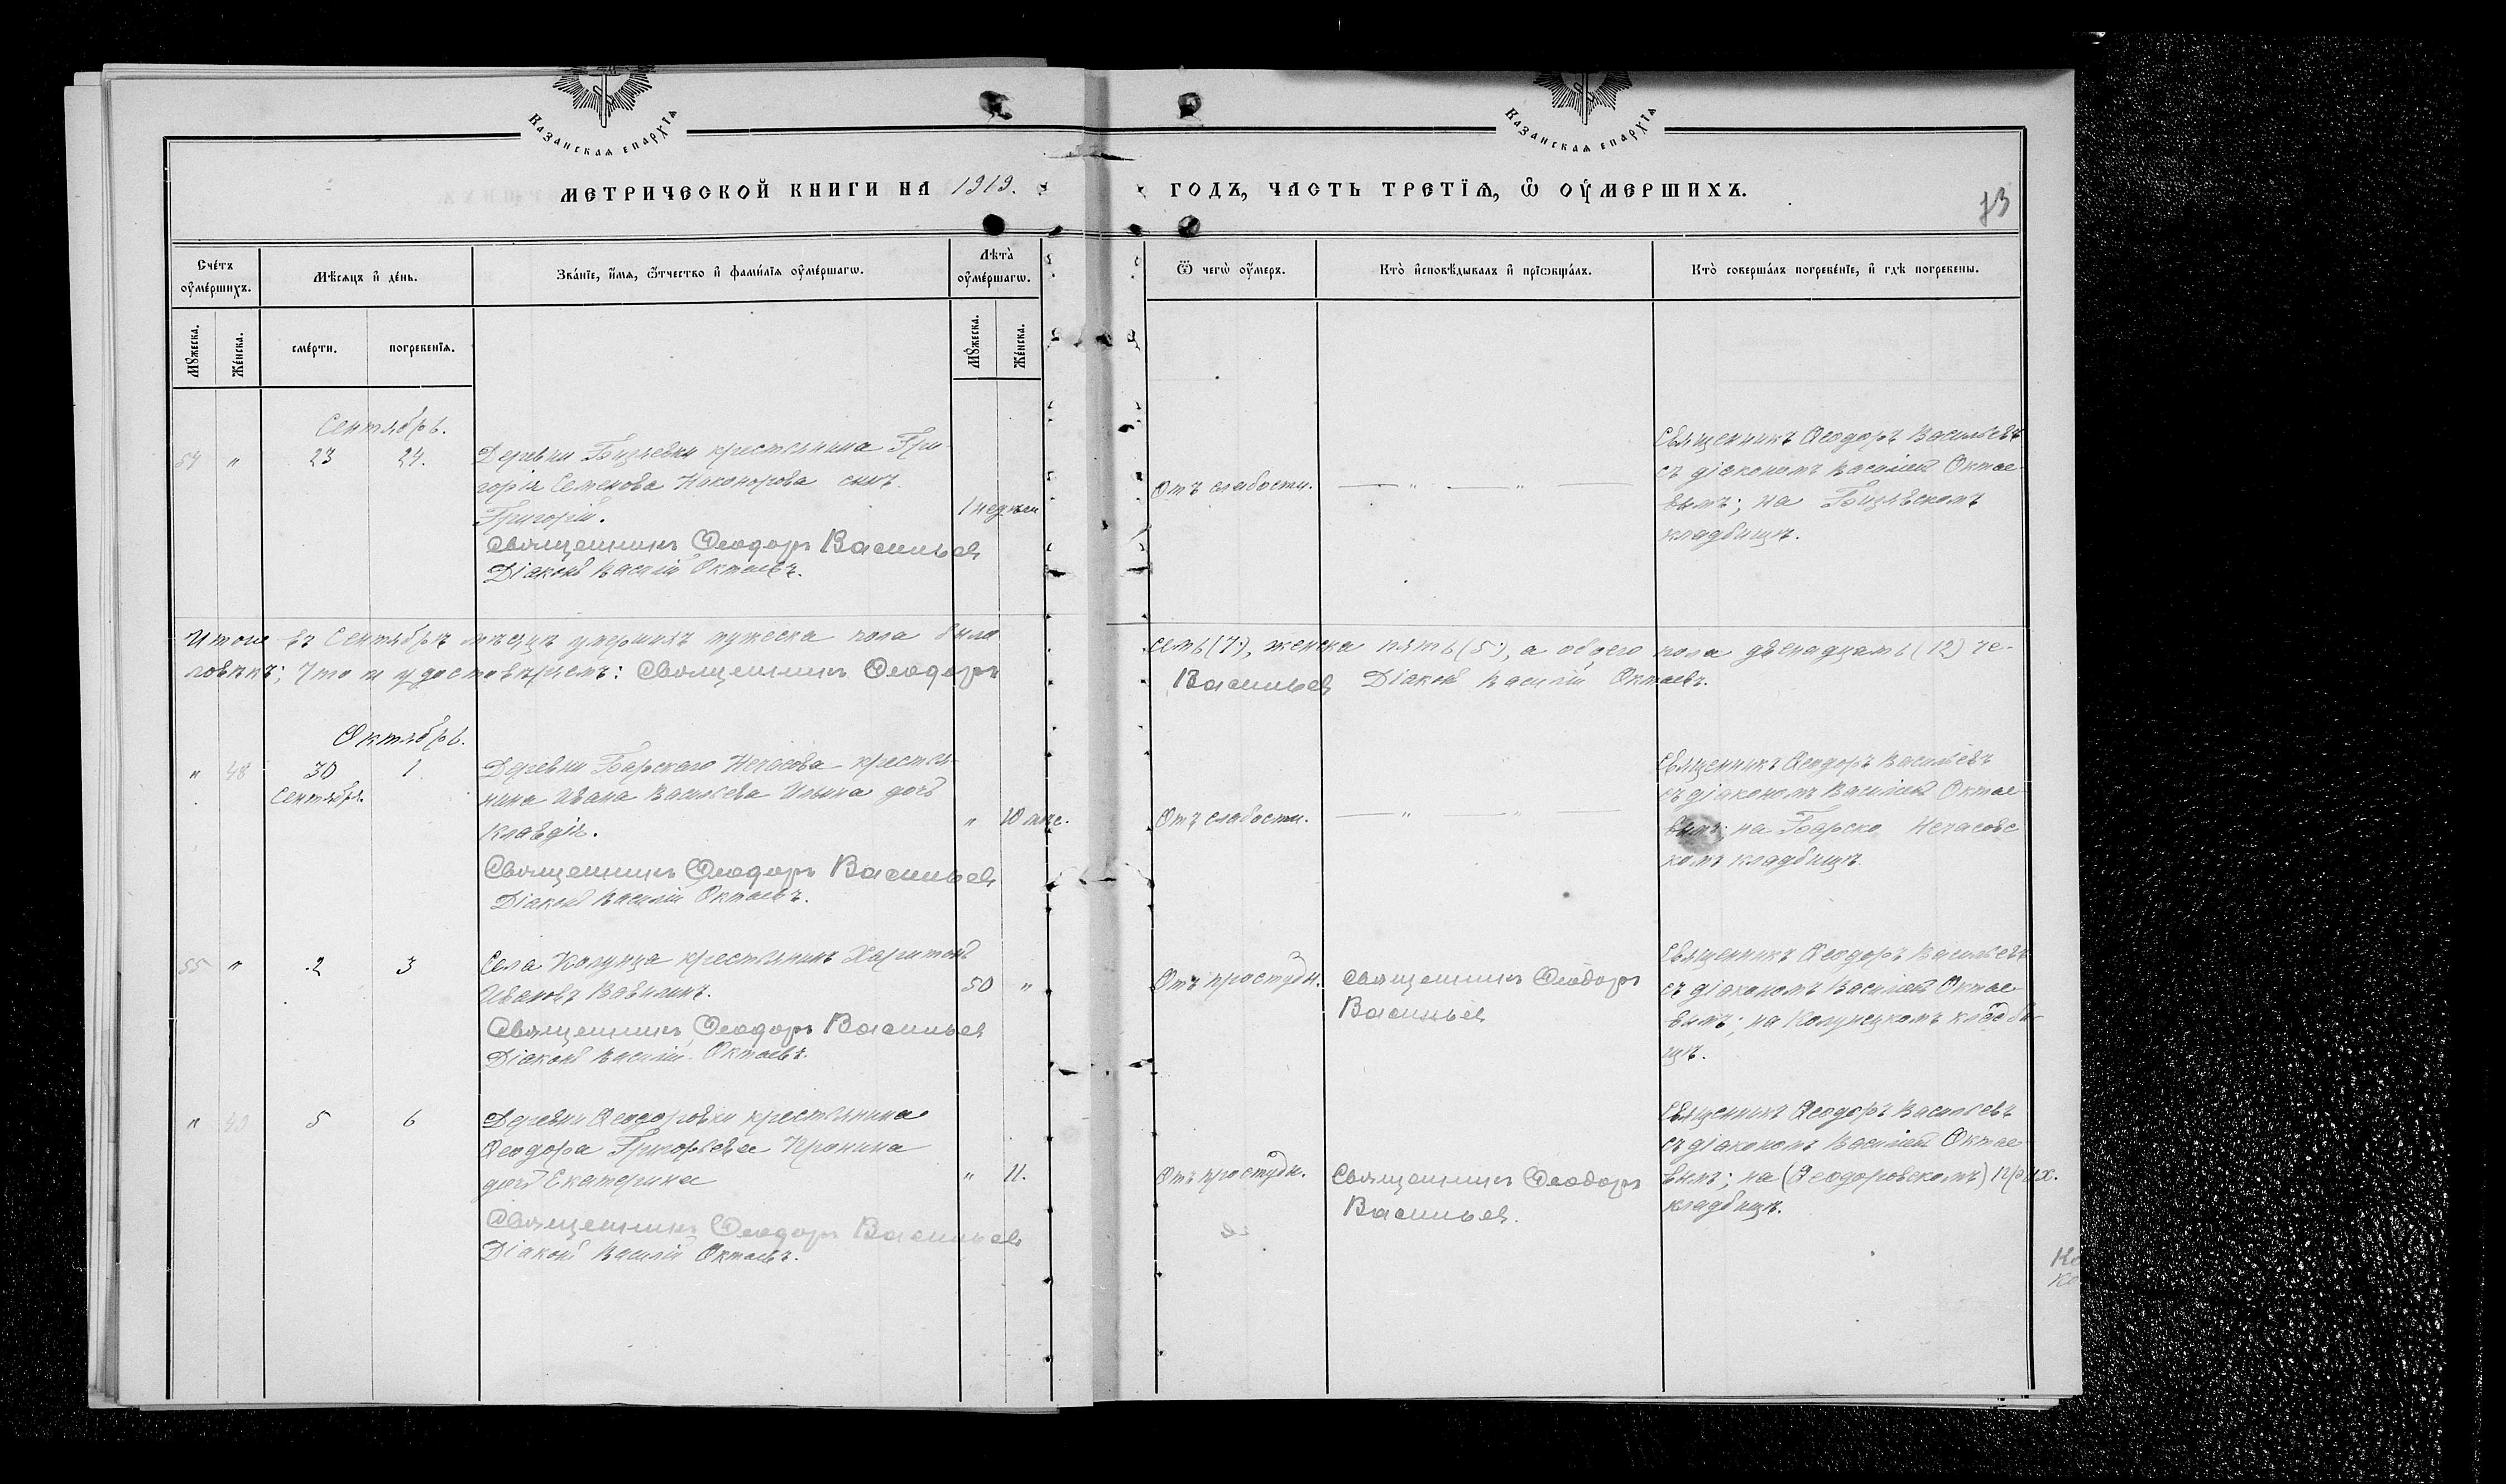 Казанская епархїѧ
Казанская епархїѧ
МЕТРИЧЕСКОЙ КНИГИ НА 1919.
ГОДЪ, ЧАСТЬ ТРЕТЇѦ, Ѿ ОУМЕРШИХЪ.
73
Сче́тъ оу҆ме́ршихъ.
Мѣ́сѧцъ и҆ де́нь.
Зва́нїе, и҆́мѧ, ѻ҆́тчество и҆ фами́лїѧ оу҆ме́ршагѡ.
Лѣта̀ оу҆ме́ршагѡ.
Ѿ чегѡ̀ оу҆́меръ.
Кто̀ и҆сповѣ́дывалъ и҆ прїѡбща́лъ.
Кто̀ соверша́лъ погребе́нїе, и҆ гдѣ̀ погребены̀.
Мꙋ́жеска.
Же́нска.
сме́рти.
погребе́нїѧ.
Мꙋ́жеска.
Же́нска.
Сентябрь.
54 " 23 24.
Деревни Бизяевки крестьянина Гри-
горія Семенова Никонорова сынъ
Григорій.
Священникъ Ѳеодоръ Васильевъ
Діаконъ Василій Октаевъ.
1 недѣли
Отъ слабости.
— " — " —
Священникъ Ѳеодоръ Васильевъ
съ діакономъ Василіемъ Октае-
вымъ; на Бизяевскомъ
кладбищѣ.
Итого въ Сентябрѣ мѣсяцѣ умершихъ мужеска пола было
семь (7), женска пять (5), а обоего пола двенадцать (12) че-
ловѣкъ; Что и удостовѣряемъ: Священникъ Ѳеодоръ
Васильевъ Діаконъ Василій Октаевъ.
Октябрь.
" 48 30 1
Сентября.
Деревни Барскаго Нечасова крестья-
нина Ивана Васильева Ильина дочь
Клавдія.
Священникъ Ѳеодоръ Васильевъ
Діаконъ Василій Октаевъ.
" 10 мѣс.
Отъ слабости.
— " — " —
Священникъ Ѳеодоръ Васильевъ
съ діакономъ Василіемъ Октае-
вымъ; на Барско Нечасовс
комъ кладбищѣ.
55 " 2 3
Села Колунца крестьянинъ Харитонъ
Ивановъ Вавилинъ.
Священникъ Ѳеодоръ Васильевъ
Діаконъ Василій Октаевъ.
50 "
Отъ простуды.
Священникъ Ѳеодоръ
Васильевъ
Священникъ Ѳеодоръ Васильевъ
съ діакономъ Василіемъ Октае-
вымъ; на Колунецкомъ кладби-
щѣ.
" 49 5 6
Деревни Ѳеодоровки крестьянина
Ѳеодора Григорьева Пронина
дочь Екатерина
Священникъ Ѳеодоръ Васильевъ
Діаконъ Василій Октаевъ.
" 11.
Отъ простуды.
Священникъ Ѳеодоръ
Васильевъ.
Священникъ Ѳеодоръ Васильевъ
съ діакономъ Василіемъ Октае-
вымъ; на (Ѳеодоровскомъ) прих.
кладбищѣ.